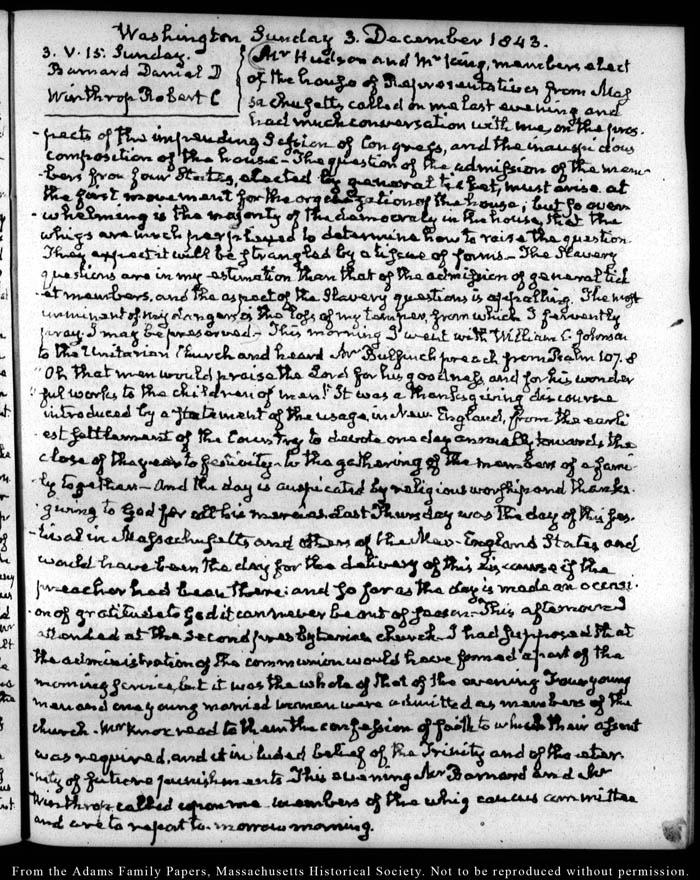 Washington Sunday 3. December 1843.
3. V. 15. Sunday.
Barnard Daniel D
Winthrop Robert C
Mr Hudson and Mr King, members elect
of the house of Representatives from Mas
sachusetts called on me last evening and
had much conversation with me, on the pros-
-pects of the impending Session of Congress, and the inauspicious
composition of the house - The question of the admission of the mem-
-bers from four States, elected by general ticket, must arise at
the first movement for the organization of the house; but so over-
-whelming is the majority of the democracy in the house, that the
whigs are much perplexed to determine how to raise the question.
They expect it will be strangled by a tissue of forms - The Slavery
questions are in my estimation than that of the admission of general tick
-et members, and the aspect of the Slavery questions is appalling. The most
imminent of my dangers is the loss of my temper, from which I fervently
pray I may be preserved - This morning I went with William C. Johnson
to the Unitarian Church and heard Mr Bulfinch preach from Psalm 107. 8
"Oh that men would praise the Lord for his goodness, and for his wonder
"ful works to the children of men!" It was a thanksgiving discourse
introduced by a statement of the usage, in New England, from the earli-
-est settlement of the Country to devote one day annually, towards the
close of the year to festivity - to the gathering of the members of a fami-
-ly together - and the day is auspicated by religious worship and thanks-
-giving to God for all his mercies. Last Thursday was the day of this fes-
-tival in Massachusetts and others of the New-England States, and
would have been the day for the delivery of this discourse if the
preacher had been there: and so far as the day is made an occasi-
-on of gratitude to God it can never be out of season - This afternoon I
attended at the second presbyterian church - I had supposed that
the administration of the communion would have formed a part of the
morning service, but it was the whole of that of the evening Four young
men and one young married woman were admitted as members of the
church - Mr Knox read to them the confession of faith to which their assent
was required, and it included belief of the Trinity and of the eter-
-nity of future punishments - This evening Mr Barnard and Mr
Winthrop called upon me - members of the whig caucus committee
and are to report to-morrow morning.
From the Adams Family Papers, Massachusetts Historical Society. Not to be reproduced without permission.